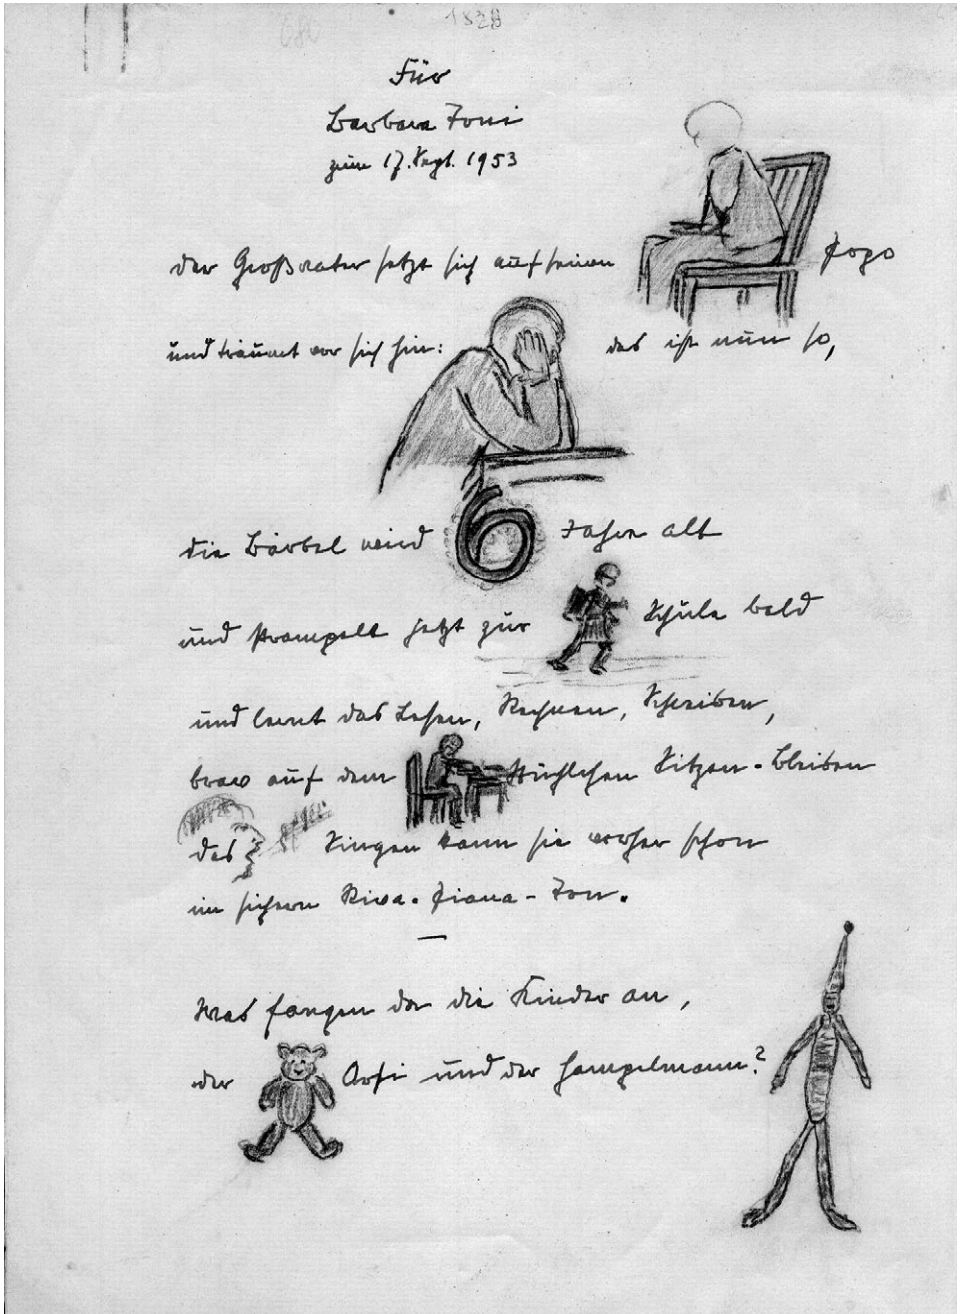 1828
Für
Barbara Toni
zum 17. Sept. 1953
der Großvater setzt sich auf seinen Popo
und träumt vor sich hin: das ist nun so,
die Bärbel wird 6 Jahre alt
und strampelt jetzt zur Schule bald
und lernt das Lesen, Rechnen, Schreiben,
brav auf dem Stühlchen Sitzen-Bleiben
das Singen kann sie vorher schon
im sichern Ton.
Was fangen da die Kinder an,
der und der Hampelmann?